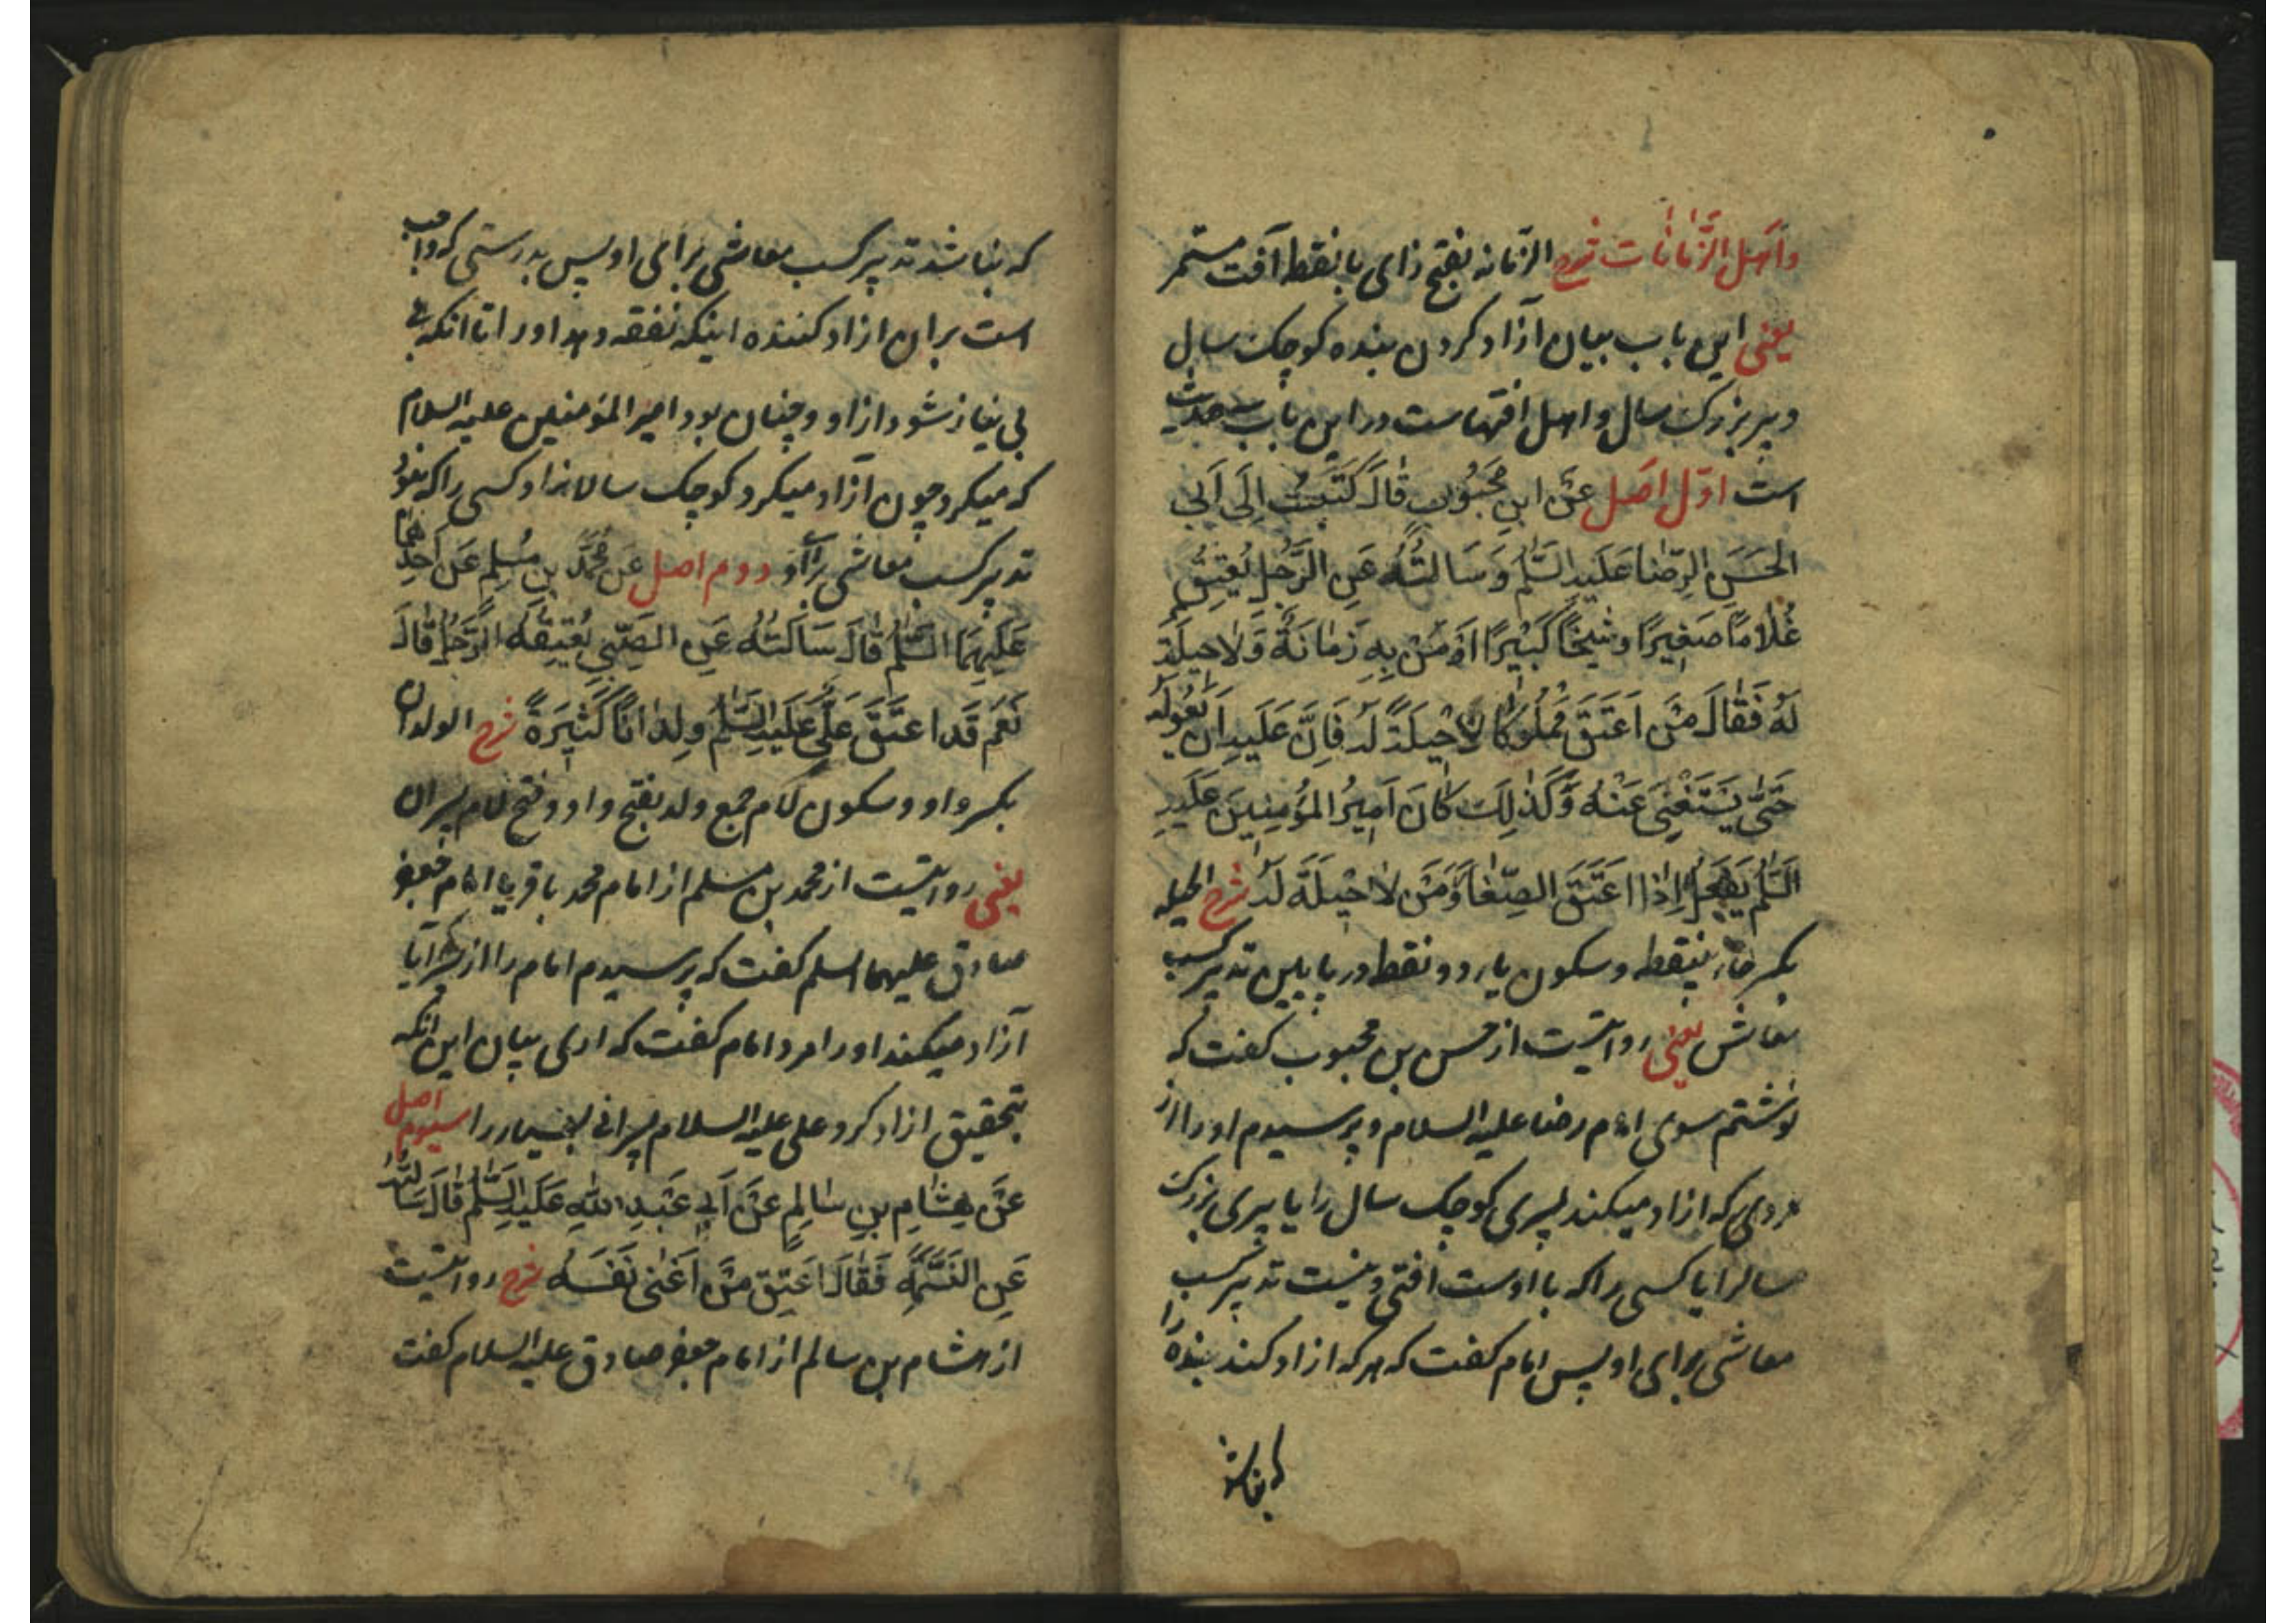 وَاَهلِ الزَّمَانَات شرح الزمانه بفتح زای با نقطه آفت مستمر
یعنی این باب بیان آزاد کردن بنده کوچک سال
و پیر بزرک سال و اهل افتهاست در این باب سه حدیث
است اوّل اصل عَن ابنِ مَحبُوبٍ قَالَ كَتَبتُ اِلَى اَبِي
الحَسَنِ الرِّضَا عَلَيهِ السَّلَمُ وَسَاَلتُهُ عَنِ الرَّجُلِ يُعتِقُ
غُلَامًا صَغِيرًا وشَيخًا كَبيرًا اَو مَن بِهِ زَمَانَةٌ وَلَا حِيلَةَ
لَهُ فَقَالَ مَن اَعتَقَ مَملُوكًا لَا حِيلَةَ لَهُ فَاِنَّ عَلَيهِ اَن يَعُولَهُ
حَتَّى يَستَغنِيَ عَنهُ وَكَذَلِكَ كَانَ اَمِيرُ المُؤمِنِينَ عَلَيهِ
السَّلَمُ يَفعَلُ اِذَا اعتَقَ الصِّغَارَ وَمَن لَا حِيلَةَ لَهُ شرح الحیله
بکسر حاء بینقطه و سکون یاء دو نقطه در پایین تدبیر کسب
معاش یعنی روایتست از حسن بن محبوب کفت که
نوشتم سوی امام رضا علیه السلام و پرسیدم او را از
مردی که ازاد میکند پسری کوچک سال را یا پیری بزرک
سالرا یا کسی را که با اوست افتی و نیست تدبیر کسب
معاشی برای او پس امام کفت که هر که ازاد کند بنده را
که نباشد
که نباشد تدبیر کسب معاشی برای او پس بدرستی که واجب
است بر ان ازاد کننده اینکه نفقه دهد او را تا انکه
بی نیاز شود از او و چنان بود امیر المؤمنین علیه السلام
که میکرد چون آزاد میکرد کوچک سالانرا و کسی را که نبود
تدبیر کسب معاشی برای او دوم اصل عَن مُحَمَّدِ بنِ مُسلِمٍ عَن اَحَدِهِمَا
عَلَيهِمَا السَّلَمُ قَالَ سَاَلتُهُ عَنِ الصَّبِيِ يُعتِقُهُ الرَّجُلُ قَالَ
نَعَم قَد اعتَقَ عَلِيٌّ عَلَيهِ السَّلَمُ وِلدَانًا كَثِيرَةً شرح الولدان
بکسر واو و سکون لام جمع ولد بفتح واو و فتح لام پسران
یعنی روایتست از محمد بن مسلم از امام محمد باقر یا امام جعفر
صادق علیهما السلم کفت که پرسیدم امام را از پسر آیا
آزاد میکند او را مرد امام کفت که اری بیان این انکه
بتحقیق ازاد کرد علی علیه السلام پسرانی بسیار را سیوم اصل
عَن هِشَامِ بنِ سَالِمٍ عَن اَبِي عَبدِ اللهِ عَلَيهِ السَّلَمُ قَالَ سَاَلتُهُ
عَنِ النَّسَمَةِ فَقَالَ اَعتِق مَن اَغنَى نَفسَهُ شرح روایتست
از هشام بن سالم از امام جعفر صادق علیه السلام کفت